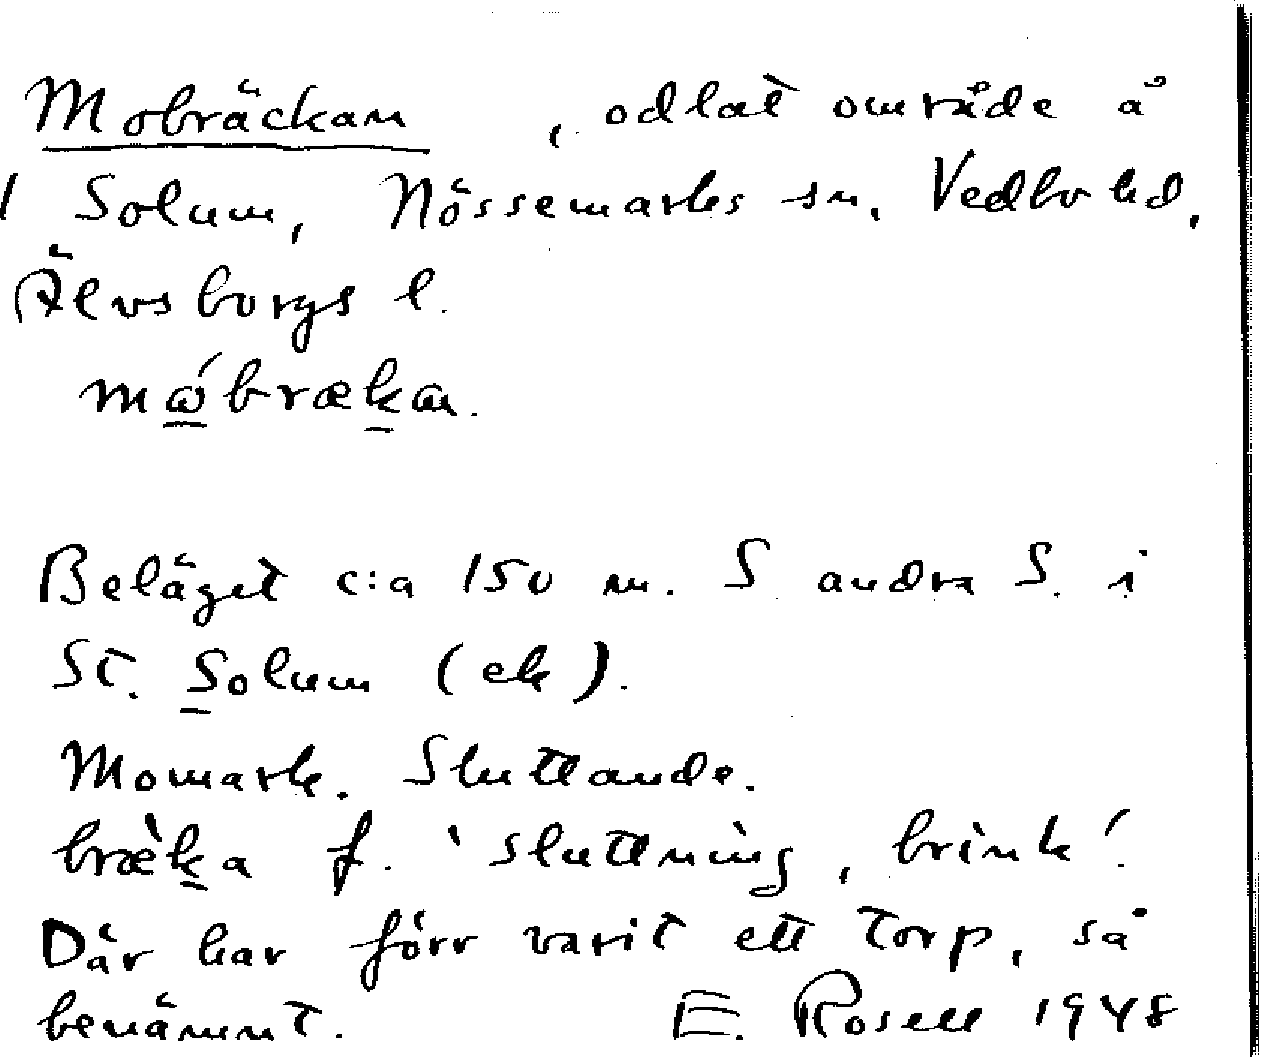 Mobräckan, odlat område å
1 Solum, Nössemarks sn, Vedbo hd,
Älvsborgs l.
mǻbrækan.
Beläget c:a 150 m. S andra S. i
St. Solum (ek).
Momark. Sluttande.
bræ̀ka f. 'sluttning, brink'.
Där har förr varit ett torp, så
benämnt. E. Rosell 1948